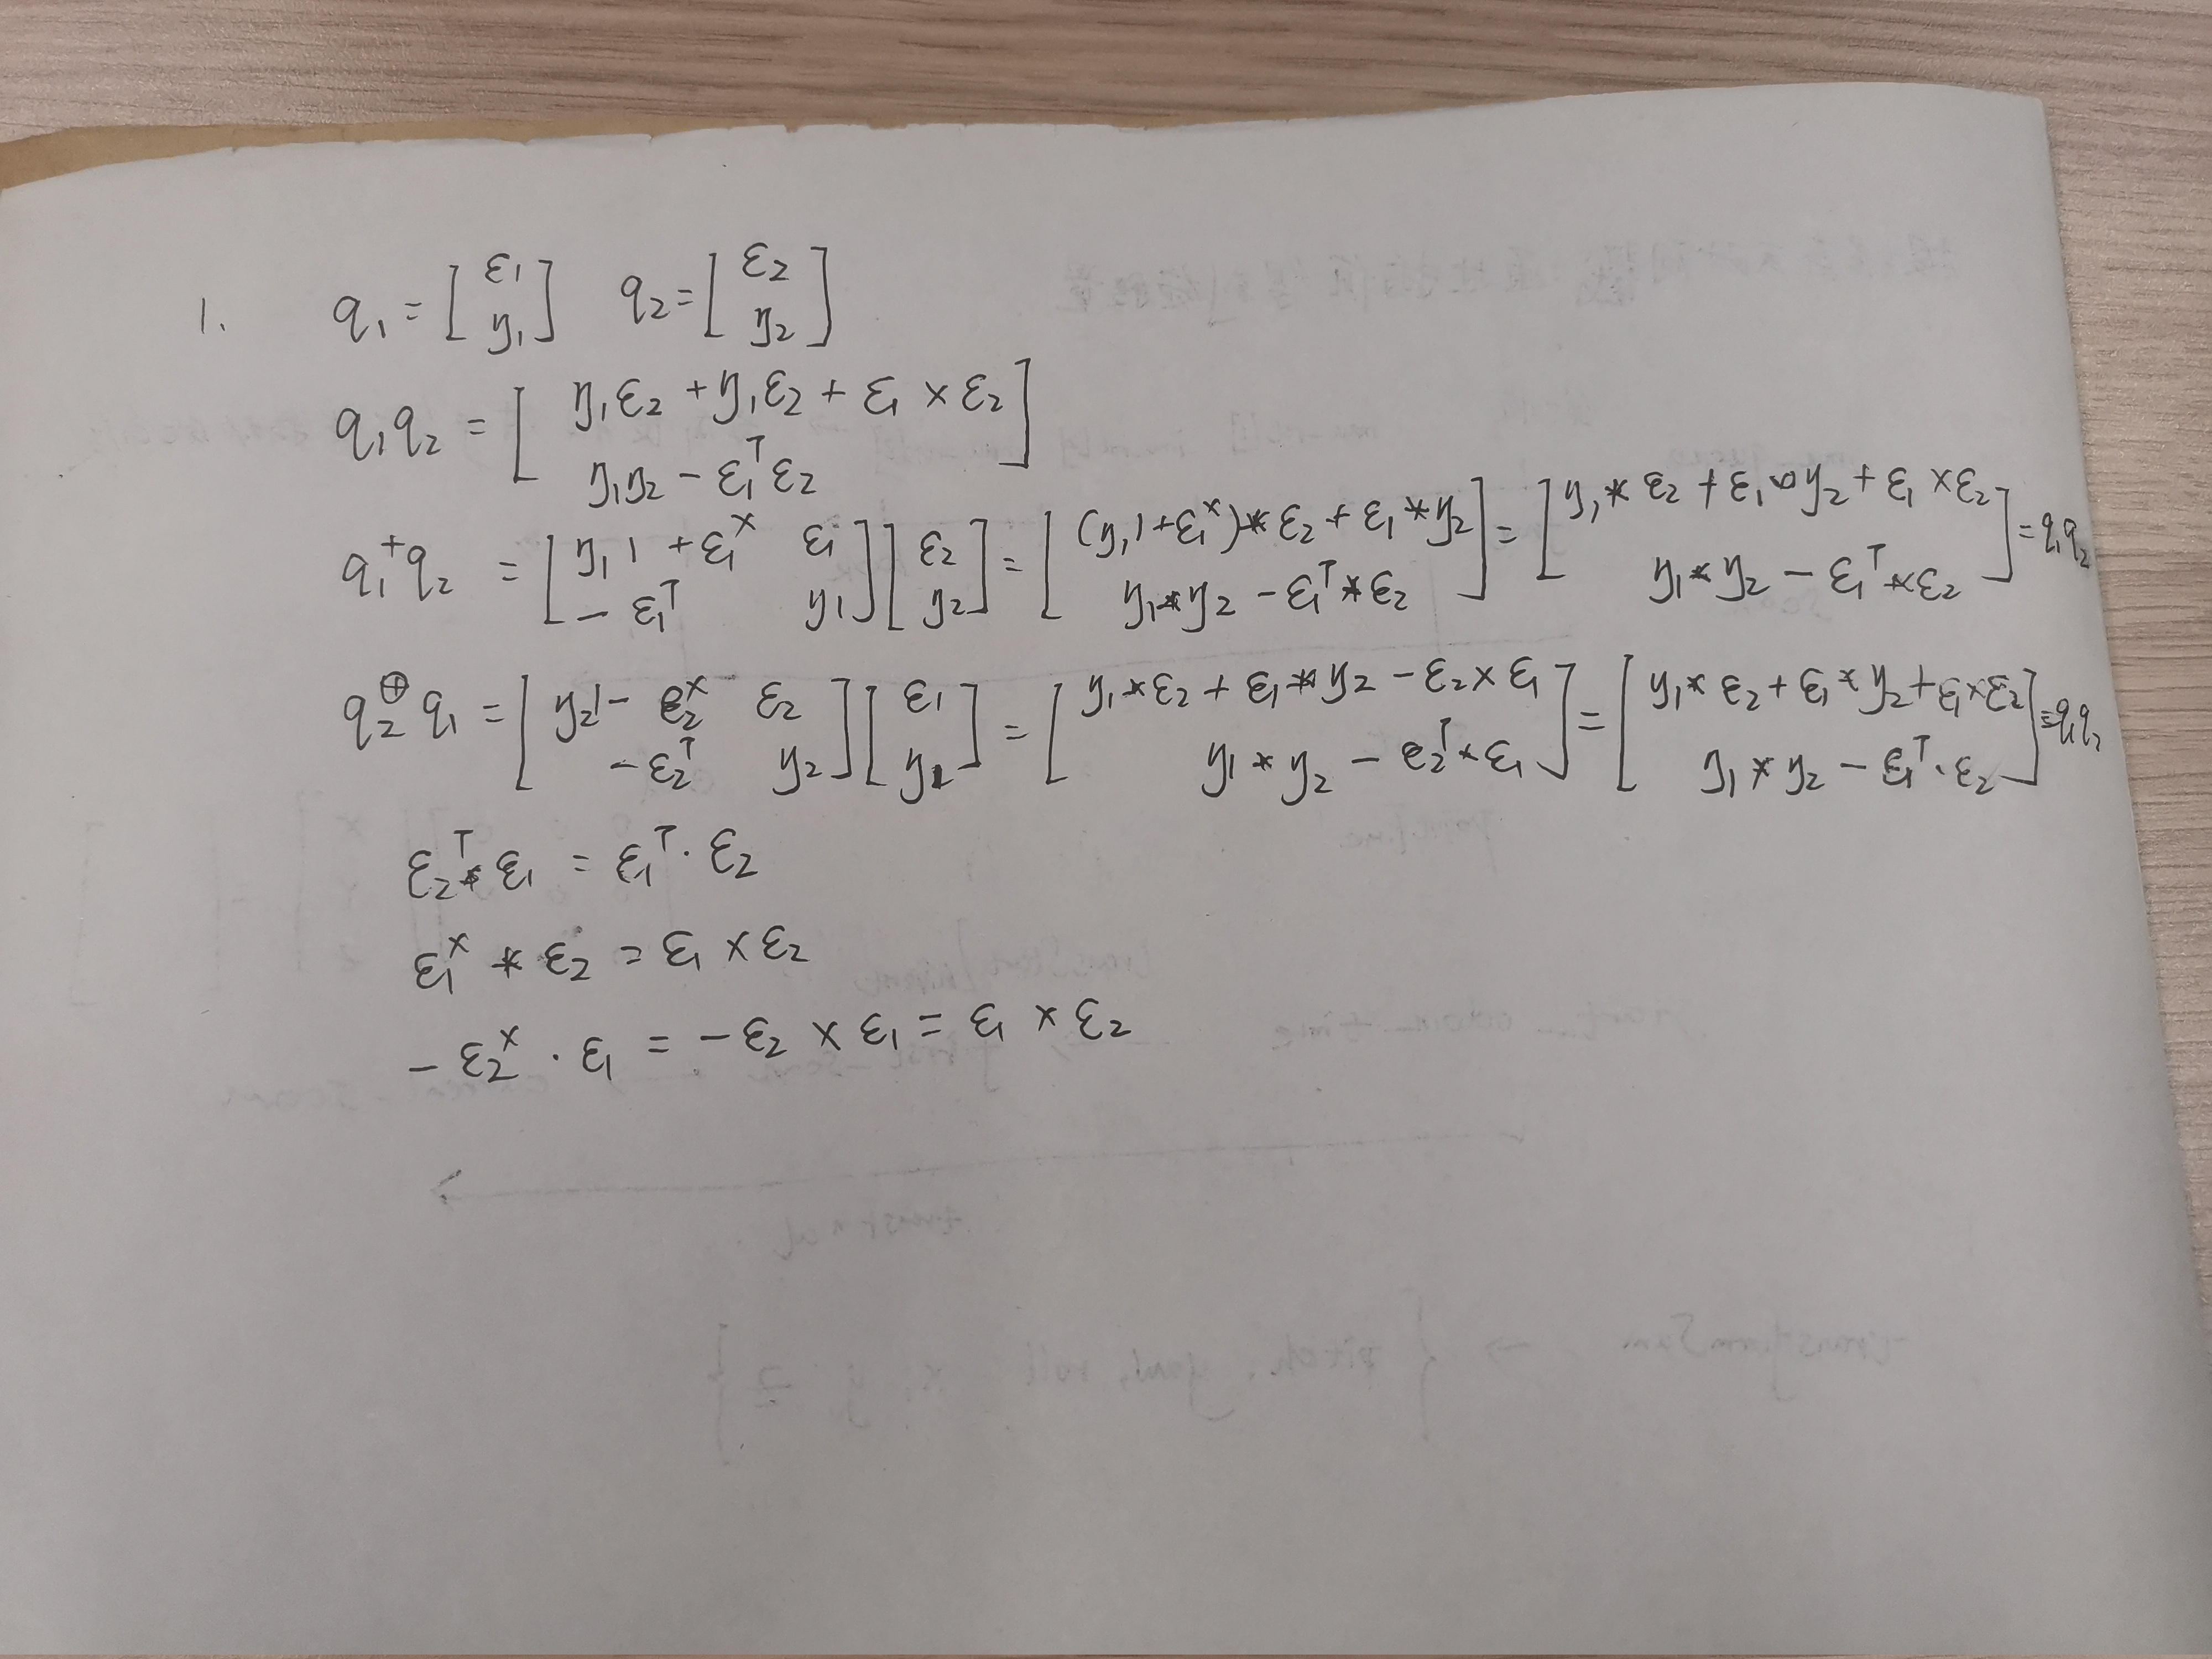 1. q₁ = [ε₁ y₁] q₂ = [ε₂ y₂]
q₁q₂ = [y₁ε₂ + y₁ε₂ + ε₁ × ε₂ y₁y₂ - ε₁ᵀε₂]
q₁⁺q₂ = [y₁1 + ε₁ˣ ε₁ -ε₁ᵀ y₁][ε₂ y₂] = [(y₁1+ε₁ˣ)*ε₂ + ε₁*y₂ y₁*y₂ - ε₁ᵀ*ε₂] = [y₁*ε₂ + ε₁*y₂ + ε₁×ε₂ y₁*y₂ - ε₁ᵀ*ε₂] = q₁q₂
q₂^⊕ q₁ = [y₂1 - ε₂ˣ ε₂ -ε₂ᵀ y₂][ε₁ y₁] = [y₁*ε₂ + ε₁*y₂ - ε₂×ε₁ y₁*y₂ - ε₂ᵀ*ε₁] = [y₁*ε₂ + ε₁*y₂ + ε₁×ε₂ y₁*y₂ - ε₁ᵀ·ε₂] = q₁q₂
ε₂ᵀ*ε₁ = ε₁ᵀ·ε₂
ε₁ˣ * ε₂ = ε₁ × ε₂
-ε₂ˣ · ε₁ = -ε₂ × ε₁ = ε₁ × ε₂